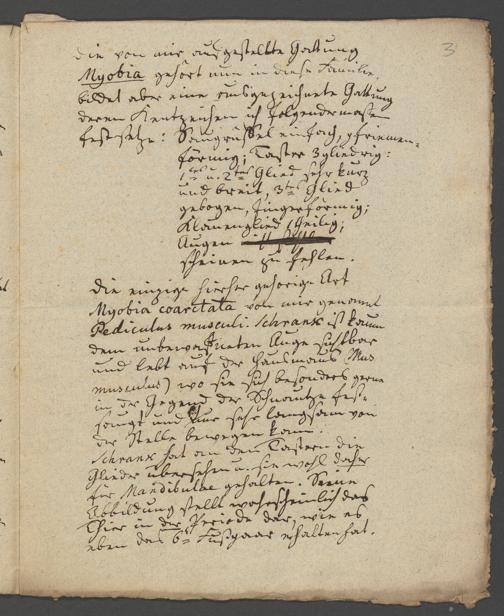 3
die von mir aufgestellte Gattung
Myobia gehört nun in diese Familie,
bildet aber eine ausgezeichnete Gattung
deren Kennzeichen ich folgendermaßen
festsetze: Saugrüssel einfach, pfriemen-
förmig; Taster 3gliedrig:
1tes u. 2tes Glied sehr kurz
und breit, 3tes Glied
gebogen, fingerförmig;
Klauenglied theilig;
Augen
scheinen zu fehlen.
Die einzige hierher gehörige Art
Myobia coarctata von mir genannt
Pediculus musculi. Schrank ist kaum
dem unbewaffneten Auge sichtbar
und lebt auf der Hausmaus (Mus
musculus) wo sie sich besonders gerne
in der Gegend der Schnautze fest-
saugt und nur sehr langsam von
der Stelle bewegen kann.
Schrank hat an den Tastern die
Glieder übersehen u. sie wohl daher
für Mandibulae gehalten. Seine
Abbildung stellt wahrscheinlich das
Thier in der Periode dar, wie es
eben das 6te Fußpaar erhalten hat.